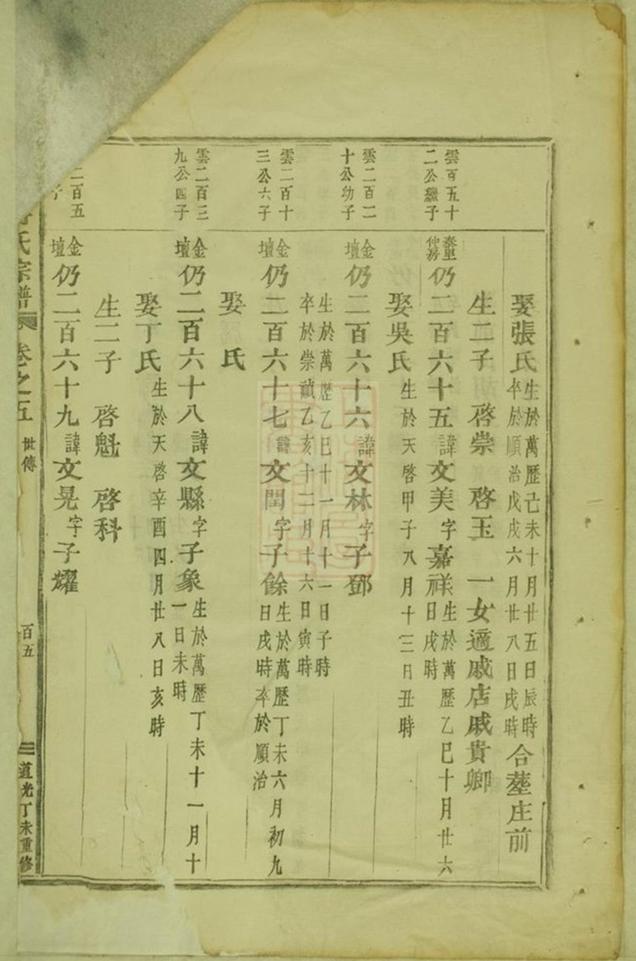 娶張氏生於萬歷己未十月廿五日辰時卒於順治戊戌六月廿八日戌時合塟庄前
生二子 啓崇 啓玉 一女適戚店戚貴卿
雲百五十二公繼子
仍二百六十五諱文美字嘉祥生於萬歷乙巳十月廿六日戌時
娶吳氏生於天啓甲子八月十三日丑時
雲二百一十公幼子
金壇仍二百六十六諱文林字子鄧
生於萬歷乙巳十一月十一日子時卒於崇禎乙亥十二月十六日寅時
雲二百十三公六子
金壇仍二百六十七諱文閏字子餘生於萬歷丁未六月初九日戌時卒於順治
娶 氏
雲二百三九公四子
金壇仍二百六十八諱文縣字子象生於萬歷丁未十一月十一日未時
娶丁氏生於天啓辛酉四月廿八日亥時
生二子 啓魁 啓科
二百五子
金壇仍二百六十九諱文晃字子耀
氏宗譜 卷之五 世傳 百五 道光丁未重修